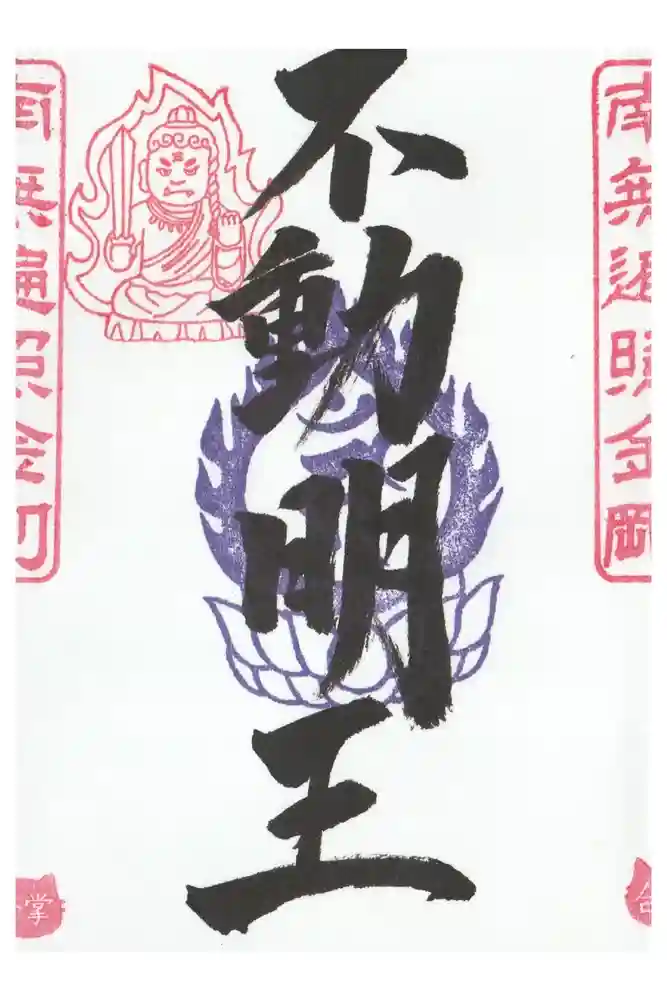 不動明王
南無遍照金剛
南無遍照金剛
合
掌